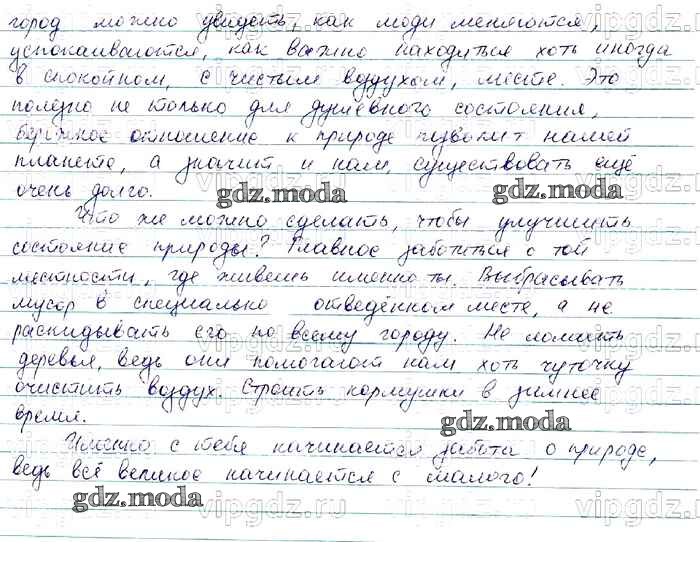 город можно увидеть, как люди меняются,
успокаиваются, как важно находиться хоть иногда
в спокойном, с чистым воздухом, месте. Это
полезно не только для душевного состояния,
бережное отношение к природе позволит нашей
планете, а значит и нам, существовать ещё
очень долго.
gdz.moda gdz.moda
Что же можно сделать, чтобы улучшить
состояние природы? Главное заботиться о той
местности, где живешь именно ты. Выбрасывать
мусор в специально отведённом месте, а не
раскидывать его по всему городу. Не ломать
деревья, ведь они помогают нам хоть чуточку
очистить воздух. Строить кормушки в зимнее
время.
gdz.moda
Именно с тебя начинается забота о природе,
ведь всё великое начинается с малого!
gdz.moda
vipgdz.ru